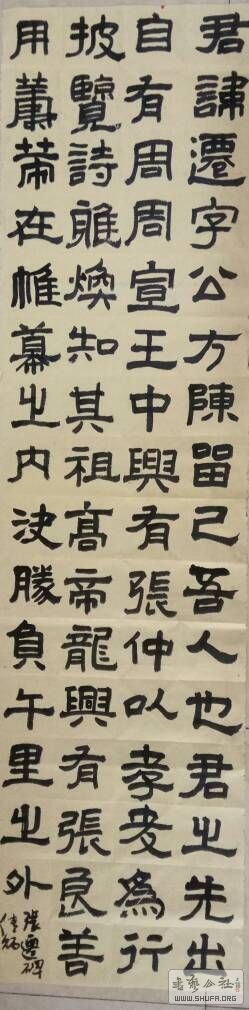 君諱遷字公方陳留己吾人也君之先出
自有周周宣王中興有張仲以孝友為行
披覽詩雅煥知其祖高帝龍興有張良善
用籌策在帷幕之內決勝負千里之外
張遷碑
書藝公社
WWW.SHUFA.ORG